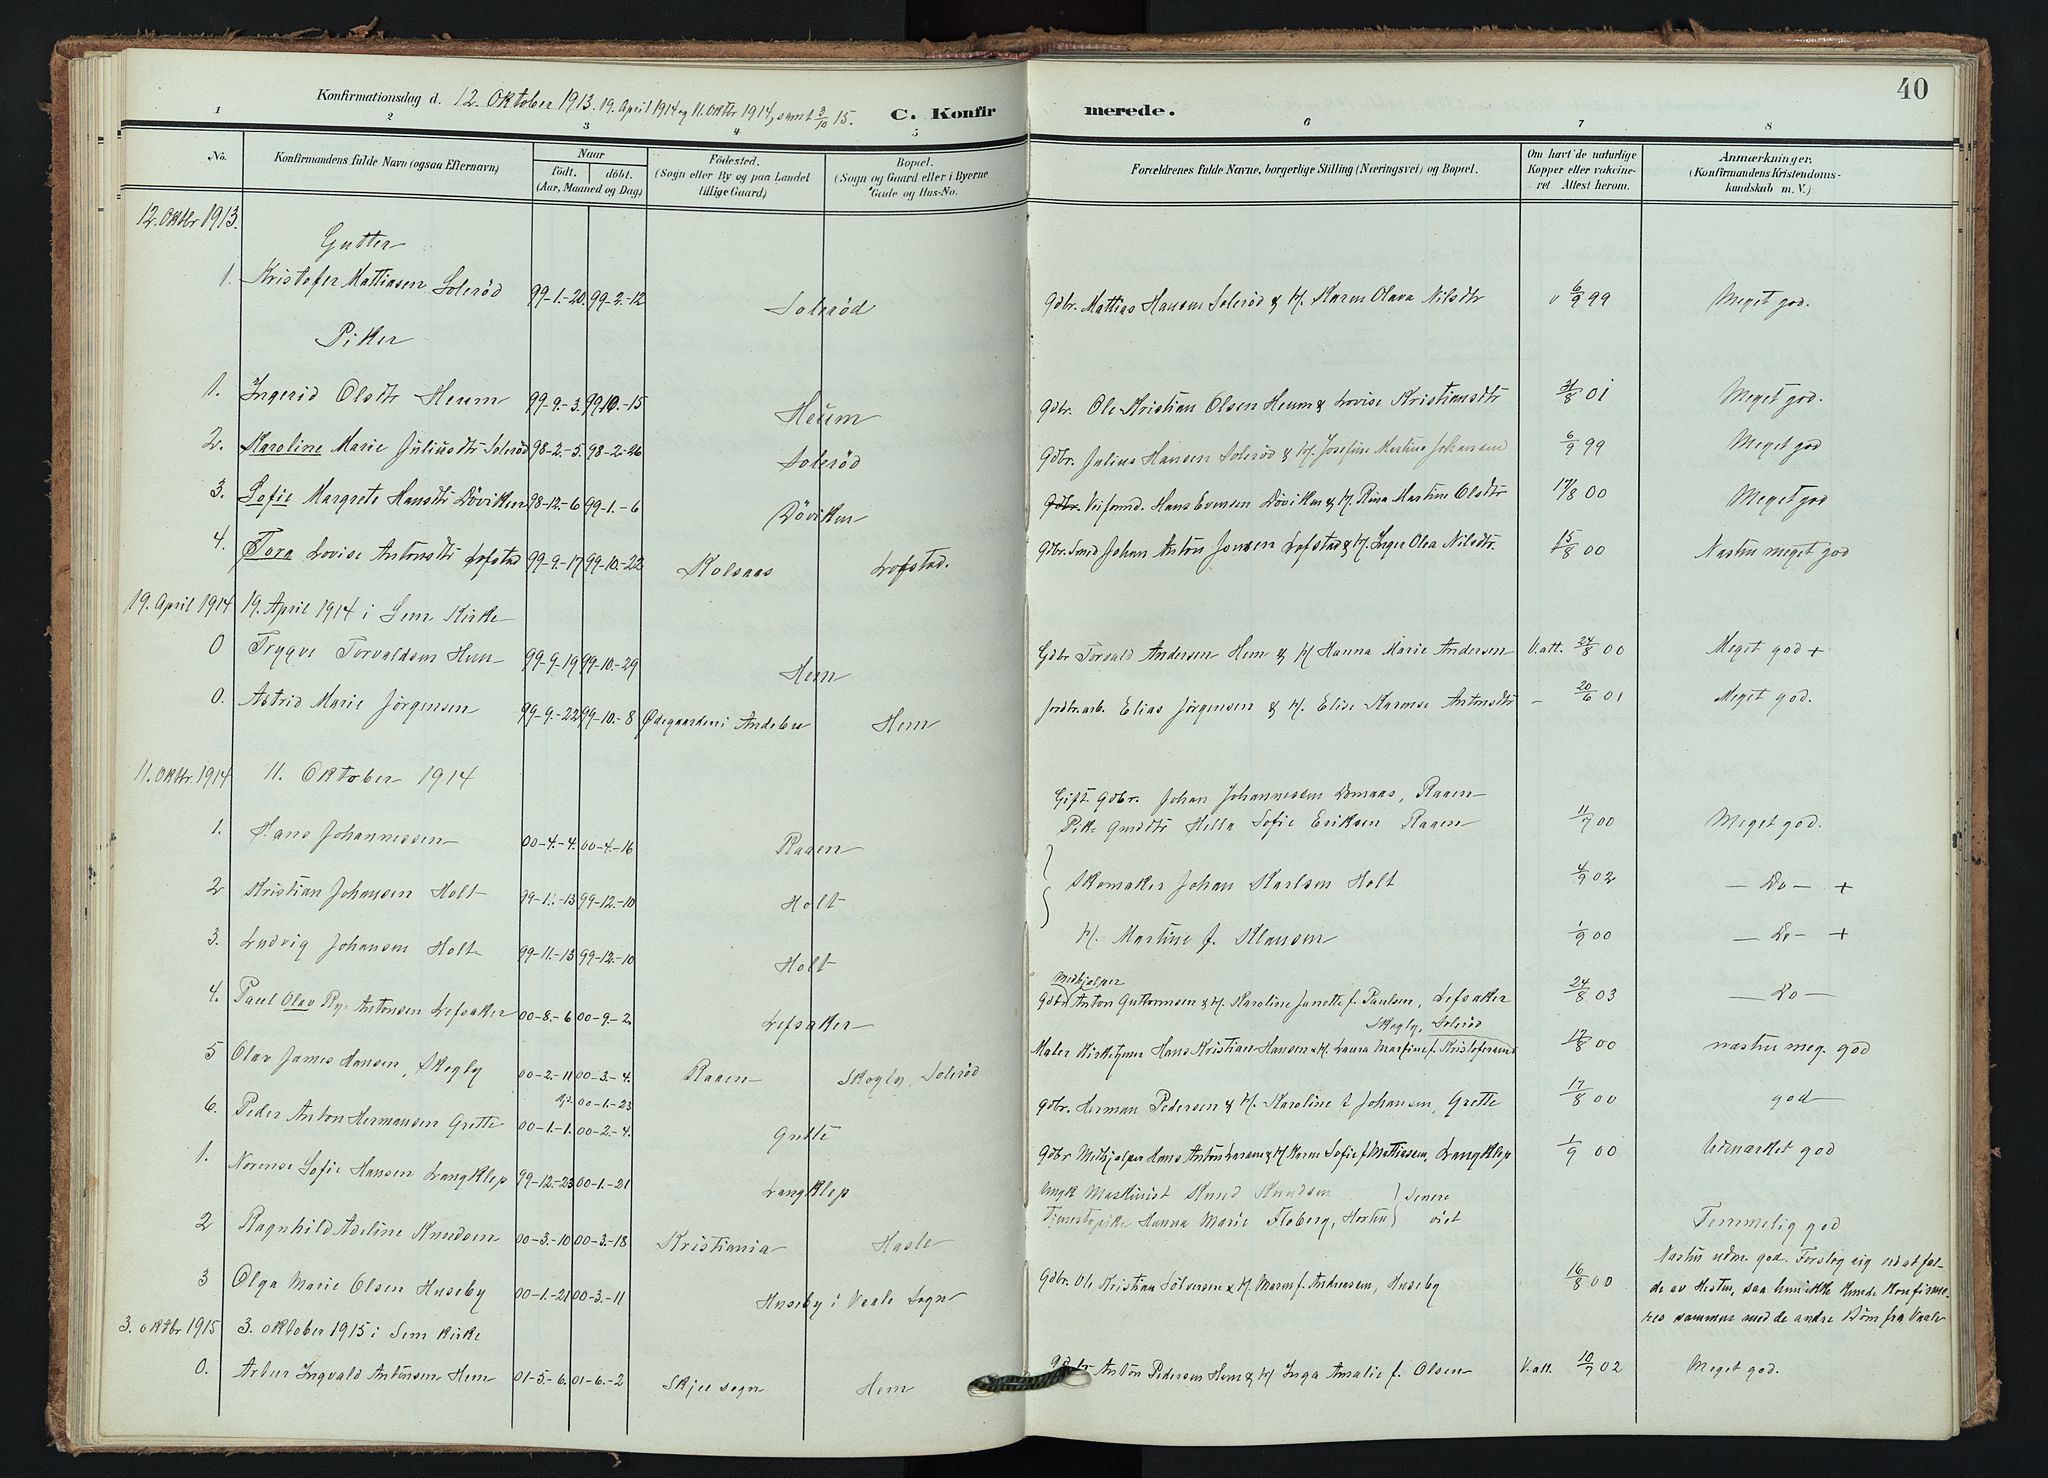 40
Konfirmationsdag d. 12. Oktober 1913. 19. April 1914 og 11. Oktbr 1914, samt 3/10 15. C. Konfirmerede.
1 2 3 4 5 6 7 8
No. Konfirmandens fulde Navn (ogsaa Efternavn) Naar födt. döbt. (Aar, Maaned og Dag) Födested. (Sogn eller By og paa Landet tillige Gaard) Bopæl. (Sogn og Gaard eller i Byerne Gade og Hus-No. Forældrenes fulde Navne, borgerlige Stilling (Næringsvei) og Bopæl. Om havt de naturlige Kopper eller vakcineret. Attest herom. Anmærkninger. (Konfirmandens Kristendomskundskab m. V.)
12. Oktbr 1913.
Gutter
1. Kristofer Mattiasen Solerød 99-1.-20. 99-2.-12 Solerød Gdbr. Mattias Hansen Solerød & H. Karen Olava Nilsdtr v 6/9 99 Meget god.
Piker
1. Ingerid Olsdtr Heum 99-9.-3. 99 10.-15 Heum Gdbr. Ole Kristian Olsen Heum & Lovise Kristiansdtr 31/8 01 Meget god.
2. Karoline Marie Juliusdtr Solerød 98-2.-5. 98-2.-26 Solerød Gdbr. Julius Hansen Solerød & H. Josefine Martine Johansen 6/9 99 Meget god
3. Sofie Margrete Hansdtr Døviken 98-12.-6 99-1.-6 Døviken Gdbr. Veiformd. Hans Evensen Døviken & H. Rina Martine Olsdtr 17/8 00 Meget god
4. Tora Lovise Antonsdtr Lofstad 99-9.-17 99-10.-22 Kolsaas Lofstad. Gdbr. Smed Johan Anton Jonsen Lofstad & H. Inger Olea Nilsdtr. 15/8 00 Næsten meget god
19. April 1914 19. April 1914 i Sem Kirke
0 Trygve Torvaldsen Hem 99-9.-19 99-10.-29 Hem Gdbr Torvald Andersen Hem & H Hanna Marie Andersen V. att. 24/8 00 Meget god +
0. Astrid Marie Jørgensen 99-9.-22 99-10.-8 Ødegaarden i Andebu Hem Jordbr.arb. Elias Jørgensen & H. Elise Karense Antonsdtr - 20/6 01 Meget god.
11. Oktbr. 1914 11. Oktober 1914
Gift Gdbr. Johan Johannessen Domaas, Raaen
1. Hans Johannessen 00-4.-4. 00-4.-16 Raaen Pike Hella Sofie Eriksen Raaen 11/7 00 Meget god.
2 Kristian Johansen Holt 99-11.-13 99-12.-10 Holt Skomaker Johan Karlsen Holt 4/9 02 — Do — +
3. Ludvig Johansen Holt 99-11.-13 99-12.-10 Holt H. Martine f. Klausen 1/9 00 — Do — +
4. Paul Olav Antonsen Lefsaker 00-8.-6 00-9.-2. Lefsaker Gdbr Medhjælper Anton Guttormsen & H. Karoline Janette f. Paulsen, Lefsaker 24/8 03 — Do —
5 Olav James Hansen, Skogly 00-2.-11 00-3.-4. Raaen Skogly, Solerød Maler Kirketjener Hans Kristian Hansen & H. Laura Martine f. Kristofersen Skogly, Solerød 17/8 00 næsten meg. god
6. Peder Anton Hermansen Grette 00-1.-1. 00-1.-23 00-2.-4. Grette Gdbr. Herman Pedersen & H. Karoline f Johansen, Grette 17/8 00 god
1. Norense Sofie Hansen Langklep 99-12.-23 00-1.-21 Langklep Gdbr Methjelper Hans Anton Larsen & H Karen Sofie f Mattiasen, Langklep 1/9 00 Udmærket god
2 Ragnhild Adeline Knudsen 00-3.-10 00-3.-18 Kristiania Hasle Ungk Maskinist Knud Knudsen Tjenestepike Hanna Marie Floberg, Horten } Senere viet Temmelig god
3 Olga Marie Olsen Huseby 00-1.-21 00-3.-11 Huseby i Vaale Sogn Gdbr. Ole Kristian Sørensen & H. Maren f. Andreassen, Huseby 16/8 00 Næsten udm. god. Forslog sig ved at falde av Hesten, saa hun ikke kunde konfirmeres sammen med de andre Børn fra Vaale
3. oktbr 1915 3. oktober 1915 i Sem kirke
0. Artur Ingvald Antonsen Hem 01-5.-6. 01-6.-2 Skjee sogn Hem Gdbr Anton Pedersen Hem & H Inga Amalie f. Olsen V. att. 10/7 02 Meget god.